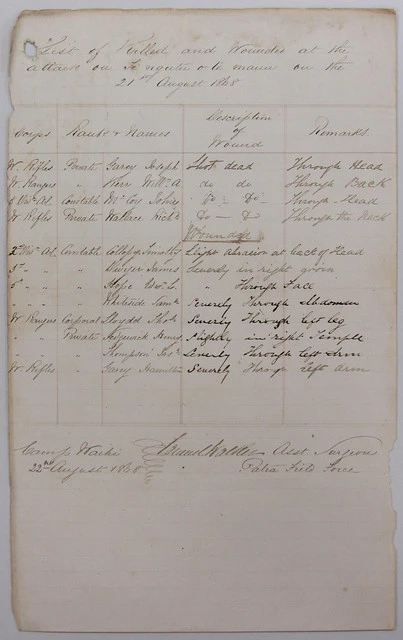 List of Killed and Wounded at the
attack on Te ngutu o te manu on the
21st August 1868
Corps Rank & Names Description of Wound Remarks
W. Rifles Private Garey Joseph Shot dead Through Head
W. Rangers " Kerr Willm A do do Through Back
2 Divn A.C. Constable McCoy John Do = Do Through Head
W Rifles Private Wallace Richd Do — Do Through the Neck
Wounded
2nd Divn A.C. Constable Collopy Timothy Slight abrasion at back of Head
5 " " " James Severely in right groin
5 " " " Hope " Through Face
" " " Whiteside Saml Severely Through Abdomen
W Rangers Corporal Thos Severely Through left leg
" " Private Henry Slightly in right Temple
" " " Thompson Severely Through left Arm
W Rifles " Garey Hamilton Severely Through left arm
Camp Waihi Samuel Walker Asst Surgeon
22nd August 1868 Patea Field Force